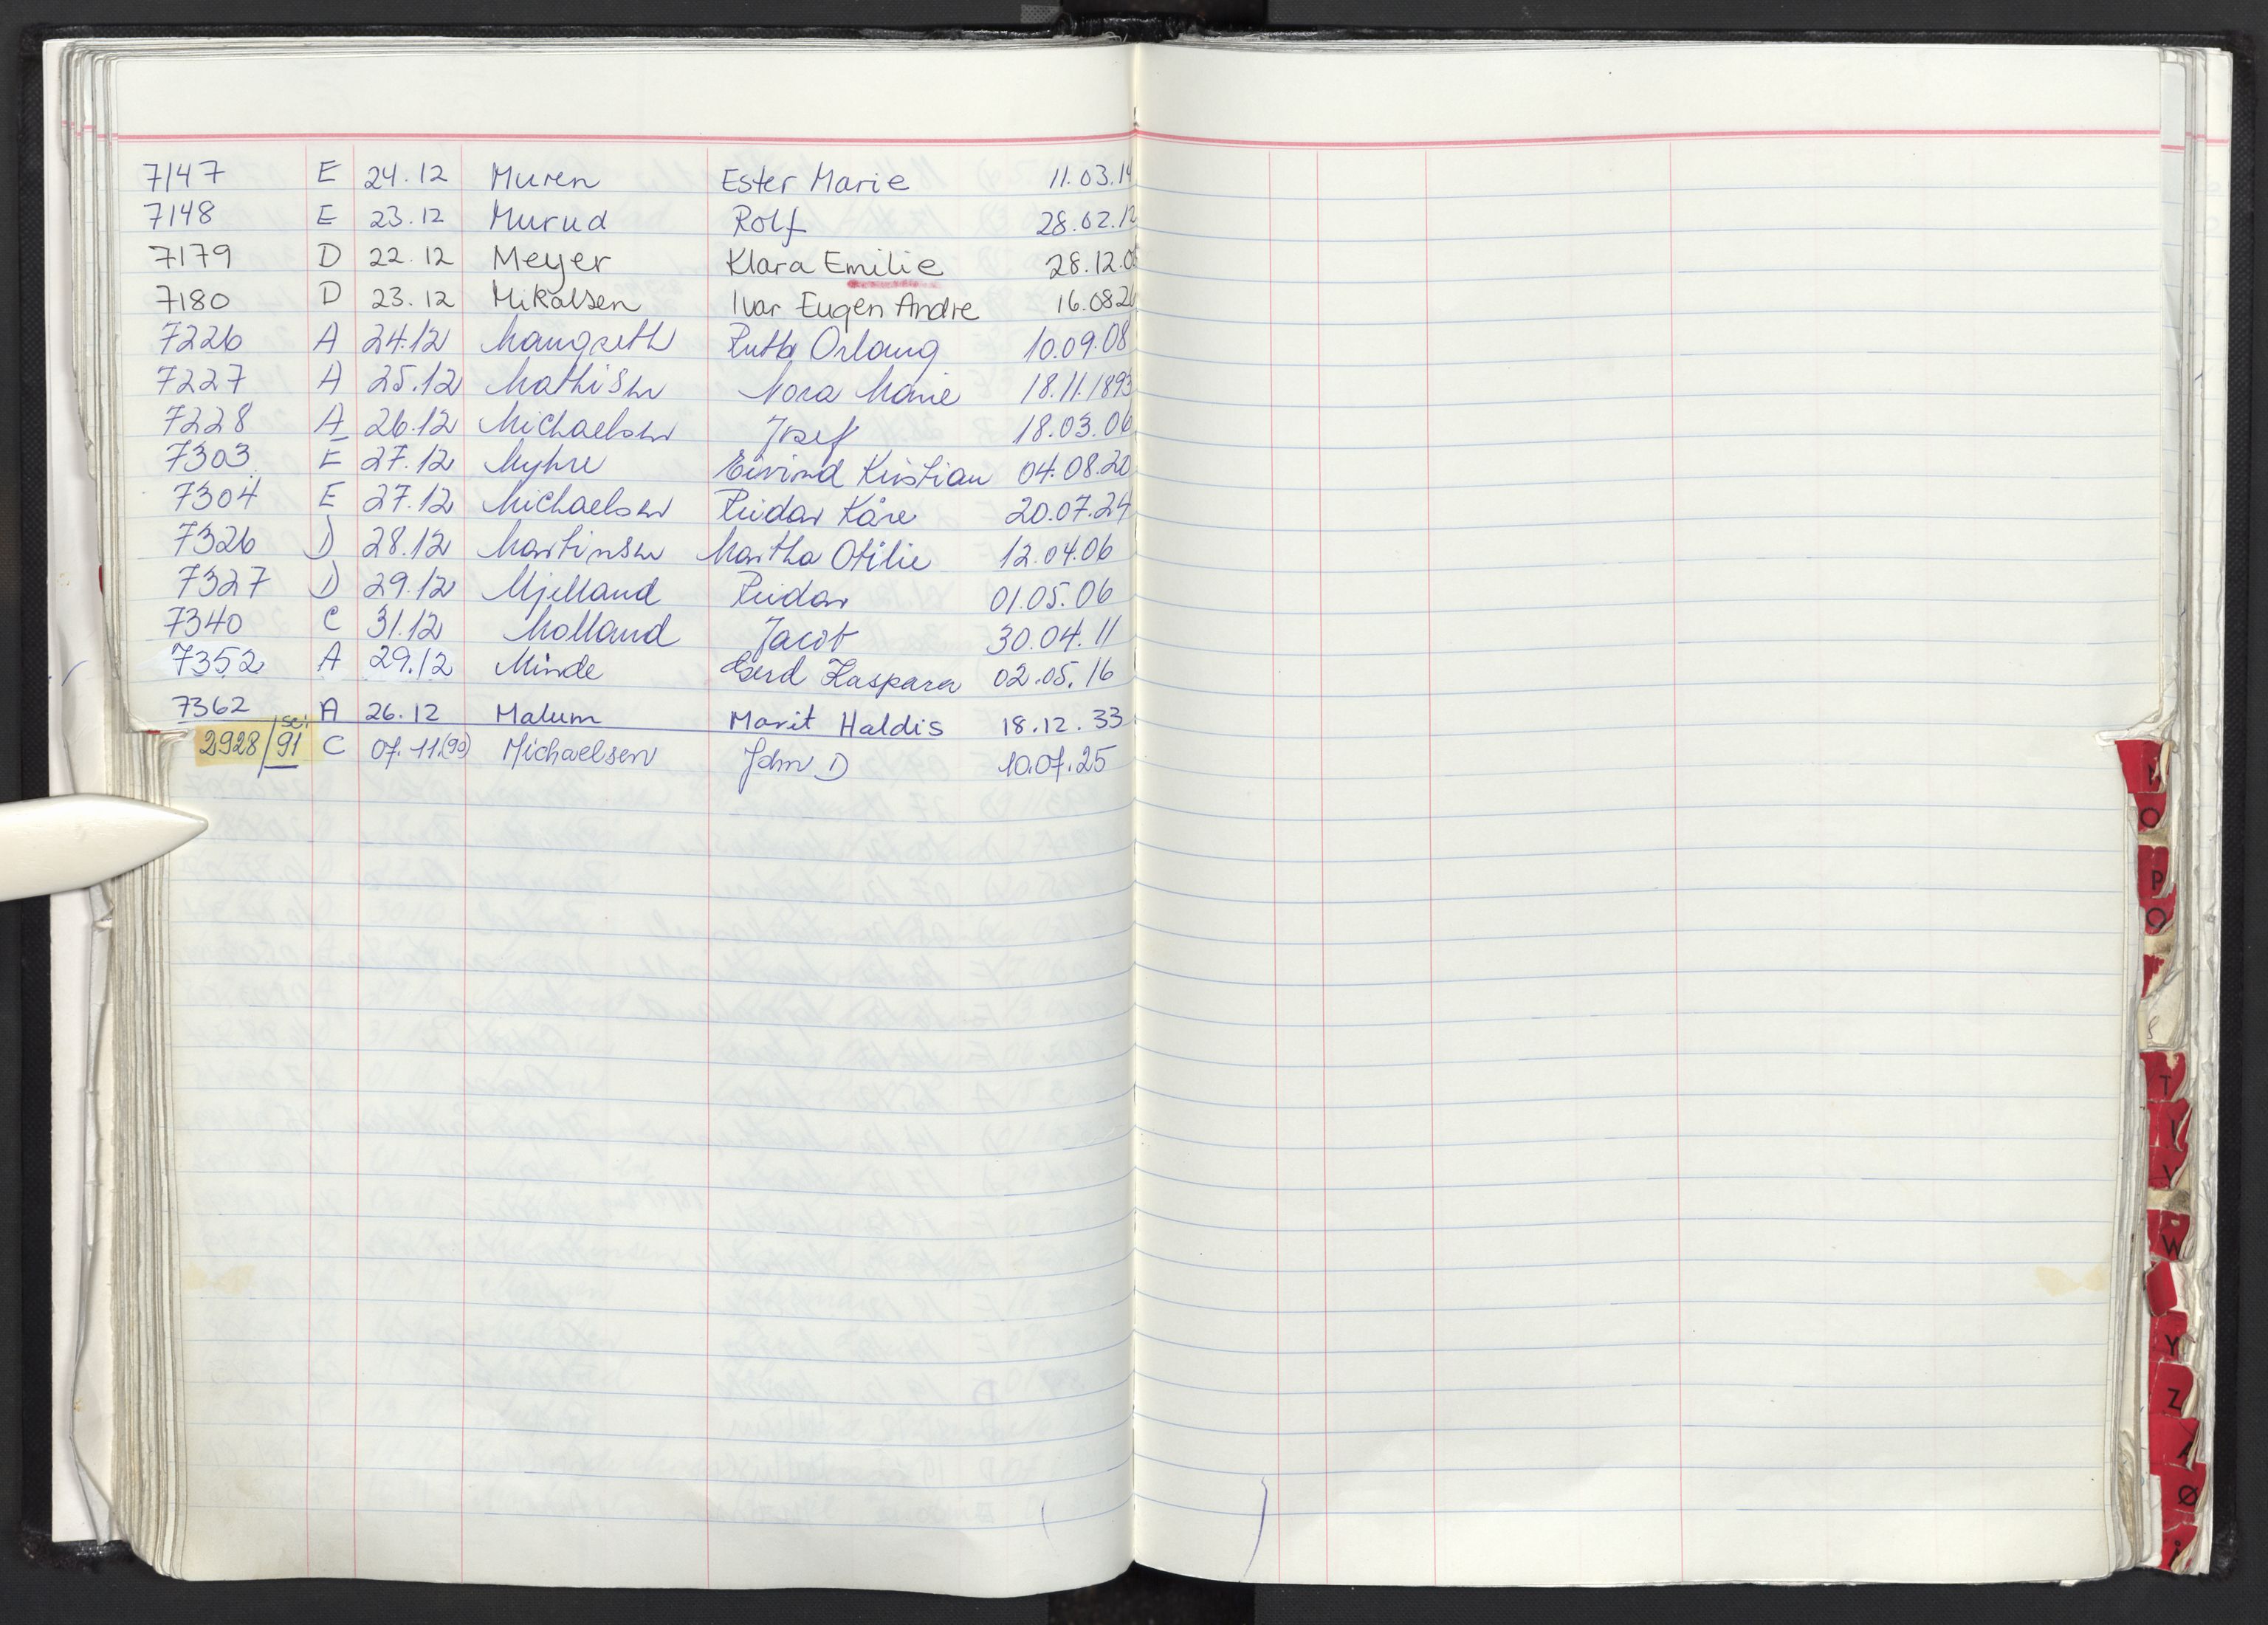 7147 E 24.12 Muren Ester Marie 11.03.14
7148 E 23.12 Murud Rolf 28.02.12
7179 D 22.12 Meyer Klara Emilie 28.12.0
7180 D 23.12 Mikalsen Ivar Eugen Andre 16.08 26
7226 A 24.12 Maugseth Ruth Orlaug 10.09.08
7227 A 25.12 Mathisen Nora Marie 18.11.1893
7228 A 26.12 Michaelsen Josef 18.03.06
7303 E 27.12 Myhre Eivind Kristian 04.08.20
7304 E 27.12 Michaelsen Reidar Kåre 20.07.24
7326 D 28.12 Martinsen Martha Otilie 12.04.06
7327 D 29.12 Mjelland Reidar 01.05.06
7340 C 31.12 Molland Jacob 30.04.11
7352 A 29.12 Minde Gerd Kaspara 02.05.16
7362 A 26.12 Malum Marit Haldis 18.12.33
se:
2928/91 C 07.11.(90) Michaelsen John D 10.07.25
N
O
P
Q
T
V
W
Y
Z
Ø